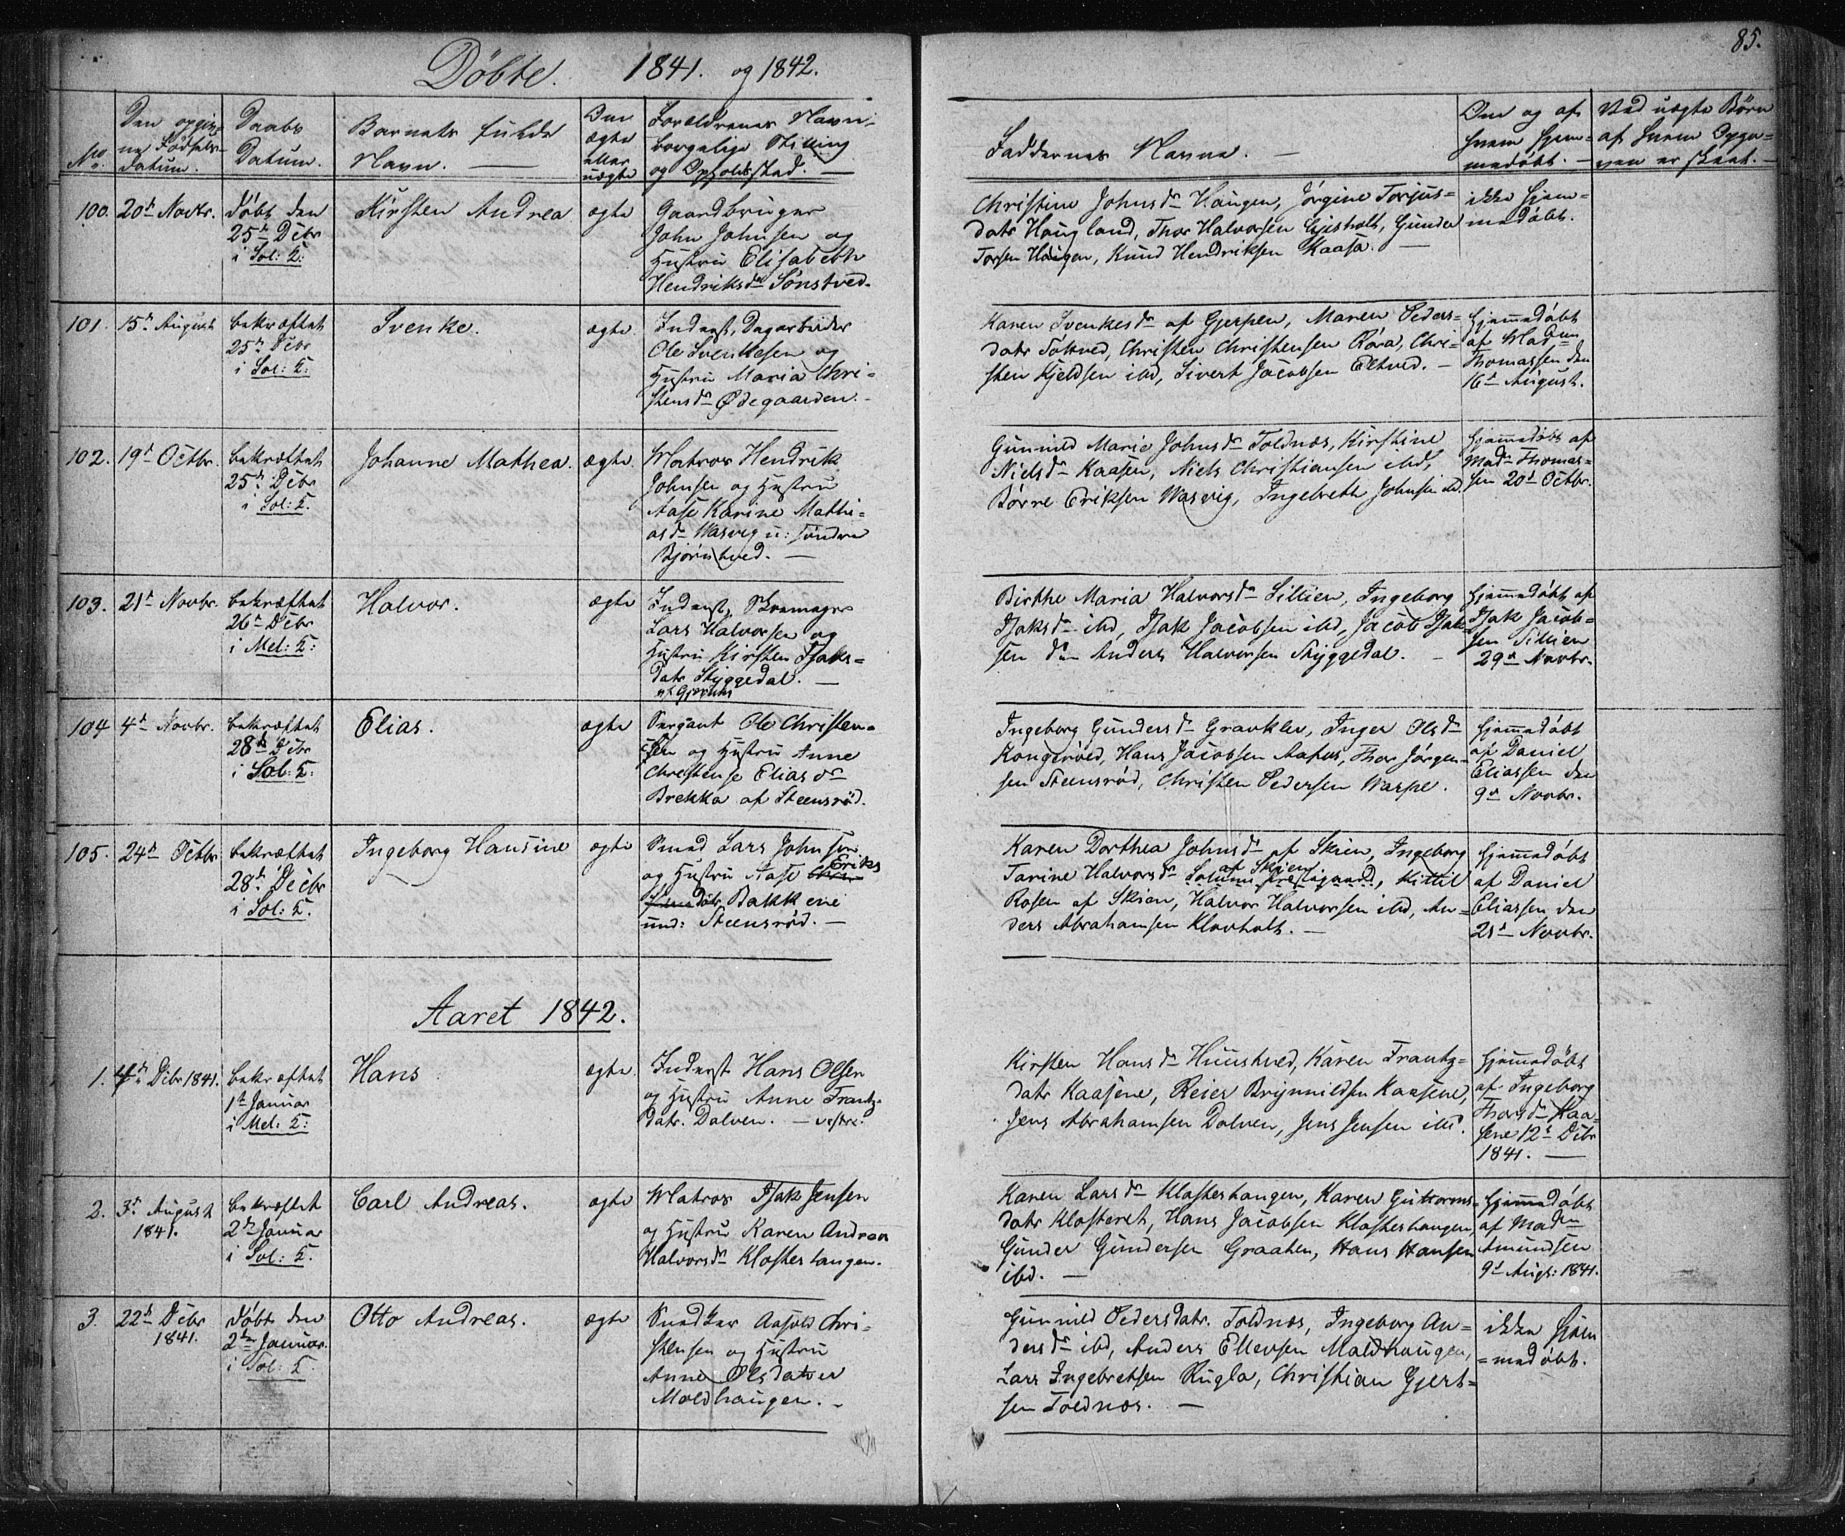 85.
Døbte. 1841. og 1842.
No.
Den opgivne Fødsels-Datum.
Daabs Datum.
Barnets fulde Navn.
Om ægte eller uægte
Forældrenes Navn, borgelige Stilling og Opholdsstad.
Faddernes Navne.
Om og af hvem hjemmedøbt.
Ved uægte Børn af hvem Opgaven er skeet.
100. 20de Novbr.
Døbt den
25de Dcbr
i Sol: K:
Kirsten Andrea
ægte
Gaardbruger
John Johnsen og
Hustru Elisabeth
Hendriksdr Sønstved.
Christine Johnsdr Haugen, Jørgine Torjus-
datr Haugland, Thor Halvorsen Gjisholt, Gunder
Torsen Haugen, Knud Hendriksen Kaasa.
ikke hjem-
medøbt.
101. 15de August
bekræftet
25de Dcbr
i Sol: K:
Svenke.
ægte
Inderst, Dagarbeider
Ole Svenkesen og
Hustru Maria Chri-
stensdr Ødegaarden.
Karen Svenkesdr af Gjerpen, Maren Peders-
datr Toltved, Christen Christensen Røra, Chri-
sten Kjeldsen ibd, Sivert Jacobsen Eltved.
hjemmedøbt
af Madm
Thomassen den
16de August.
102. 19de Octbr.
bekræftet
25de Dcbr
i Sol: K.
Johanne Mathea.
ægte
Matros Hendrik
Johnsen og Hustru
Aase Karine Mathi-
asdr Wasvig u: søndre
Bjørntved.
Gunnild Marie Johnsdr Toldnæs, Kirstine
Nielsdr Kaasen, Niels Christiansen ibd,
Børre Eriksen Wasvig, Ingebreth Johnsen ibd.
hjemmedøbt af
Madm Thomas-
sen 20de Octbr.
103. 21de Novbr.
bekræftet
26de Dcbr
i Mel: K:
Halvor.
ægte
Inderst, Skomager
Lars Halvorsen og
Hustru Kirsten Isaks-
datr Styggedal.
af Gjerpens
Birthe Maria Halvorsdr Lillien, Ingeborg
Isaksdr ibd, Isak Jacobsen ibd, Jacob Isak-
sen ibd Anders Halvorsen Styggedal.
hjemmedøbt af
Isak Jacob-
sen Lillien
29de Novbr.
104 4de Novbr.
bekræftet
28de Dcbr
i Sol: K:
Elias.
ægte
Sergant Ole Christen-
sen og Hustru Anne
Christense Eliasdr
Brekka af Steensrød.
Ingeborg Gundersdr Gravklev, Inger Olsdr
Kongerød, Hans Jacobsen Aafos, Thor Jørgen-
sen Steensrød, Christen Pedersen Warpe.
hjemmedøbt
af Daniel
Eliassen den
9de Novbr.
105. 24de Octbr
bekræftet
28de Decbr
i Sol: K.
Ingeborg Hansine
ægte
Smed Lars Johnsen
og Hustru Aase Eriks
datr. Bakkene
und: Steensrød.
Karen Dorthea Johnsdr af Skien, Ingeborg
af Skien
Tarine Halvorsdr Solum Prestegaard, Kittil
Rosen af Skien, Halvor Halvorsen ibd, An-
ders Abrahamsen Klovholt.
hjemmedøbt
af Daniel
Eliassen den
21de Novbr.
Aaret 1842.
1. 4de Dcbr 1841.
bekræftet
1ste Januar
i Mel: K:
Hans
ægte
Inderst Hans Olsen
og Hustru Anne Frantz-
datr. Dalven. vestre.
Kirsten Hansdr Huustved, Karen Frantz-
datr Kaasene, Reier Brynnildsen Kaasene,
Jens Abrahamsen Dolven, Jens Jensen ibd.
hjemmedøbt
af Ingeborg
Thorsdr Kaa-
sene 12te Dcbr
1841.
2. 3de August
1841.
bekræftet
2den Januar
i Sol: K.
Carl Andreas.
ægte
Matros Isak Jensen
og Hustru Karen Andrea
Halvorsdr Klosterhaugen.
Karen Larsdr Klosterhaugen, Karen Guttorms-
datr Klosteret, Hans Jacobsen Klosterhaugen,
Gunder Gundersen Graaten, Hans Hansen
ibd.
hjemmedøbt
af Madm
Amundsen
9de Augs: 1841.
3. 22de Dcbr
1841.
Døbt den
2den Januar.
i Sol: K
Otto Andreas.
ægte
Snedker Aasold Chri-
stensen og Hustru
Anne Olsdatter
Moldhaugen.
Gunnild Pedersdatr. Toldnæs, Ingeborg An-
dersdr ibd, Anders Ellevsen Moldhaugen,
Lars Ingebretsen Rugla, Christian Gjert-
sen Toldnæs.
ikke hjem
medøbt.